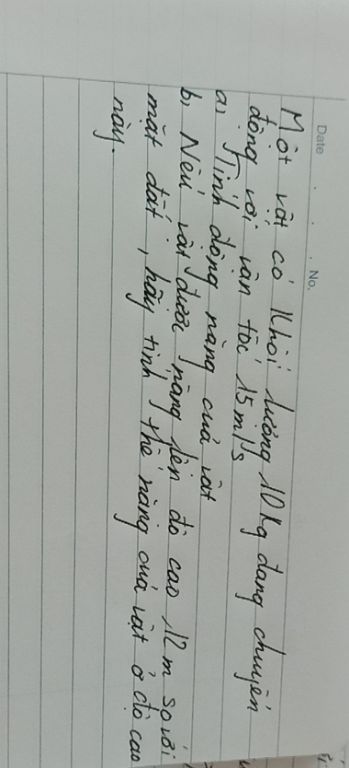 Date . . . No.
Một vật có khối lượng 10 kg đang chuyển
động với vận tốc 15 m/s
a, Tính động năng của vật
b, Nếu vật được nâng lên độ cao 12 m so với
mặt đất, hãy tính thế năng của vật ở độ cao
này.